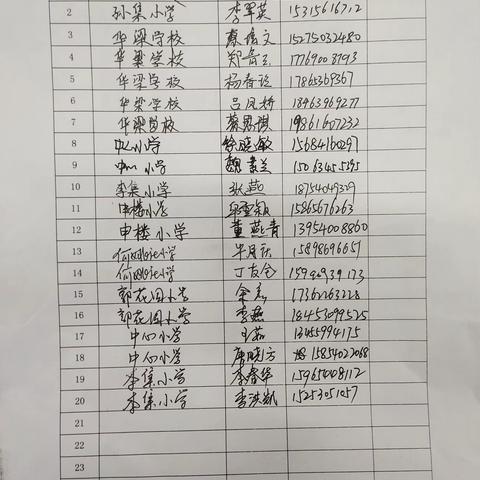 2 孙集小学 李军英 15315616712
3 华梁学校 15275032480
4 华梁学校 17769008793
5 华梁学校 杨春玲 17865369367
6 华梁学校 吕凤娇 18963969277
7 华梁学校 19861607232
8 中心小学 徐晓敏 15684160297
9 中心小学 魏素兰 15063455395
10 李集小学 狄燕 18754049329
11 申楼小学 15865676263
12 申楼小学 董燕青 13954008860
13 小学 15898696651
14 小学 15949839173
15 郭花园小学 17362263228
16 郭花园小学 李燕 18453099525
17 中心小学 王茹 13455994175
18 中心小学 唐晓方 15854022068
19 李集小学 李春华 159654008112
20 李集小学 李洪凯 15253051057
21
22
23